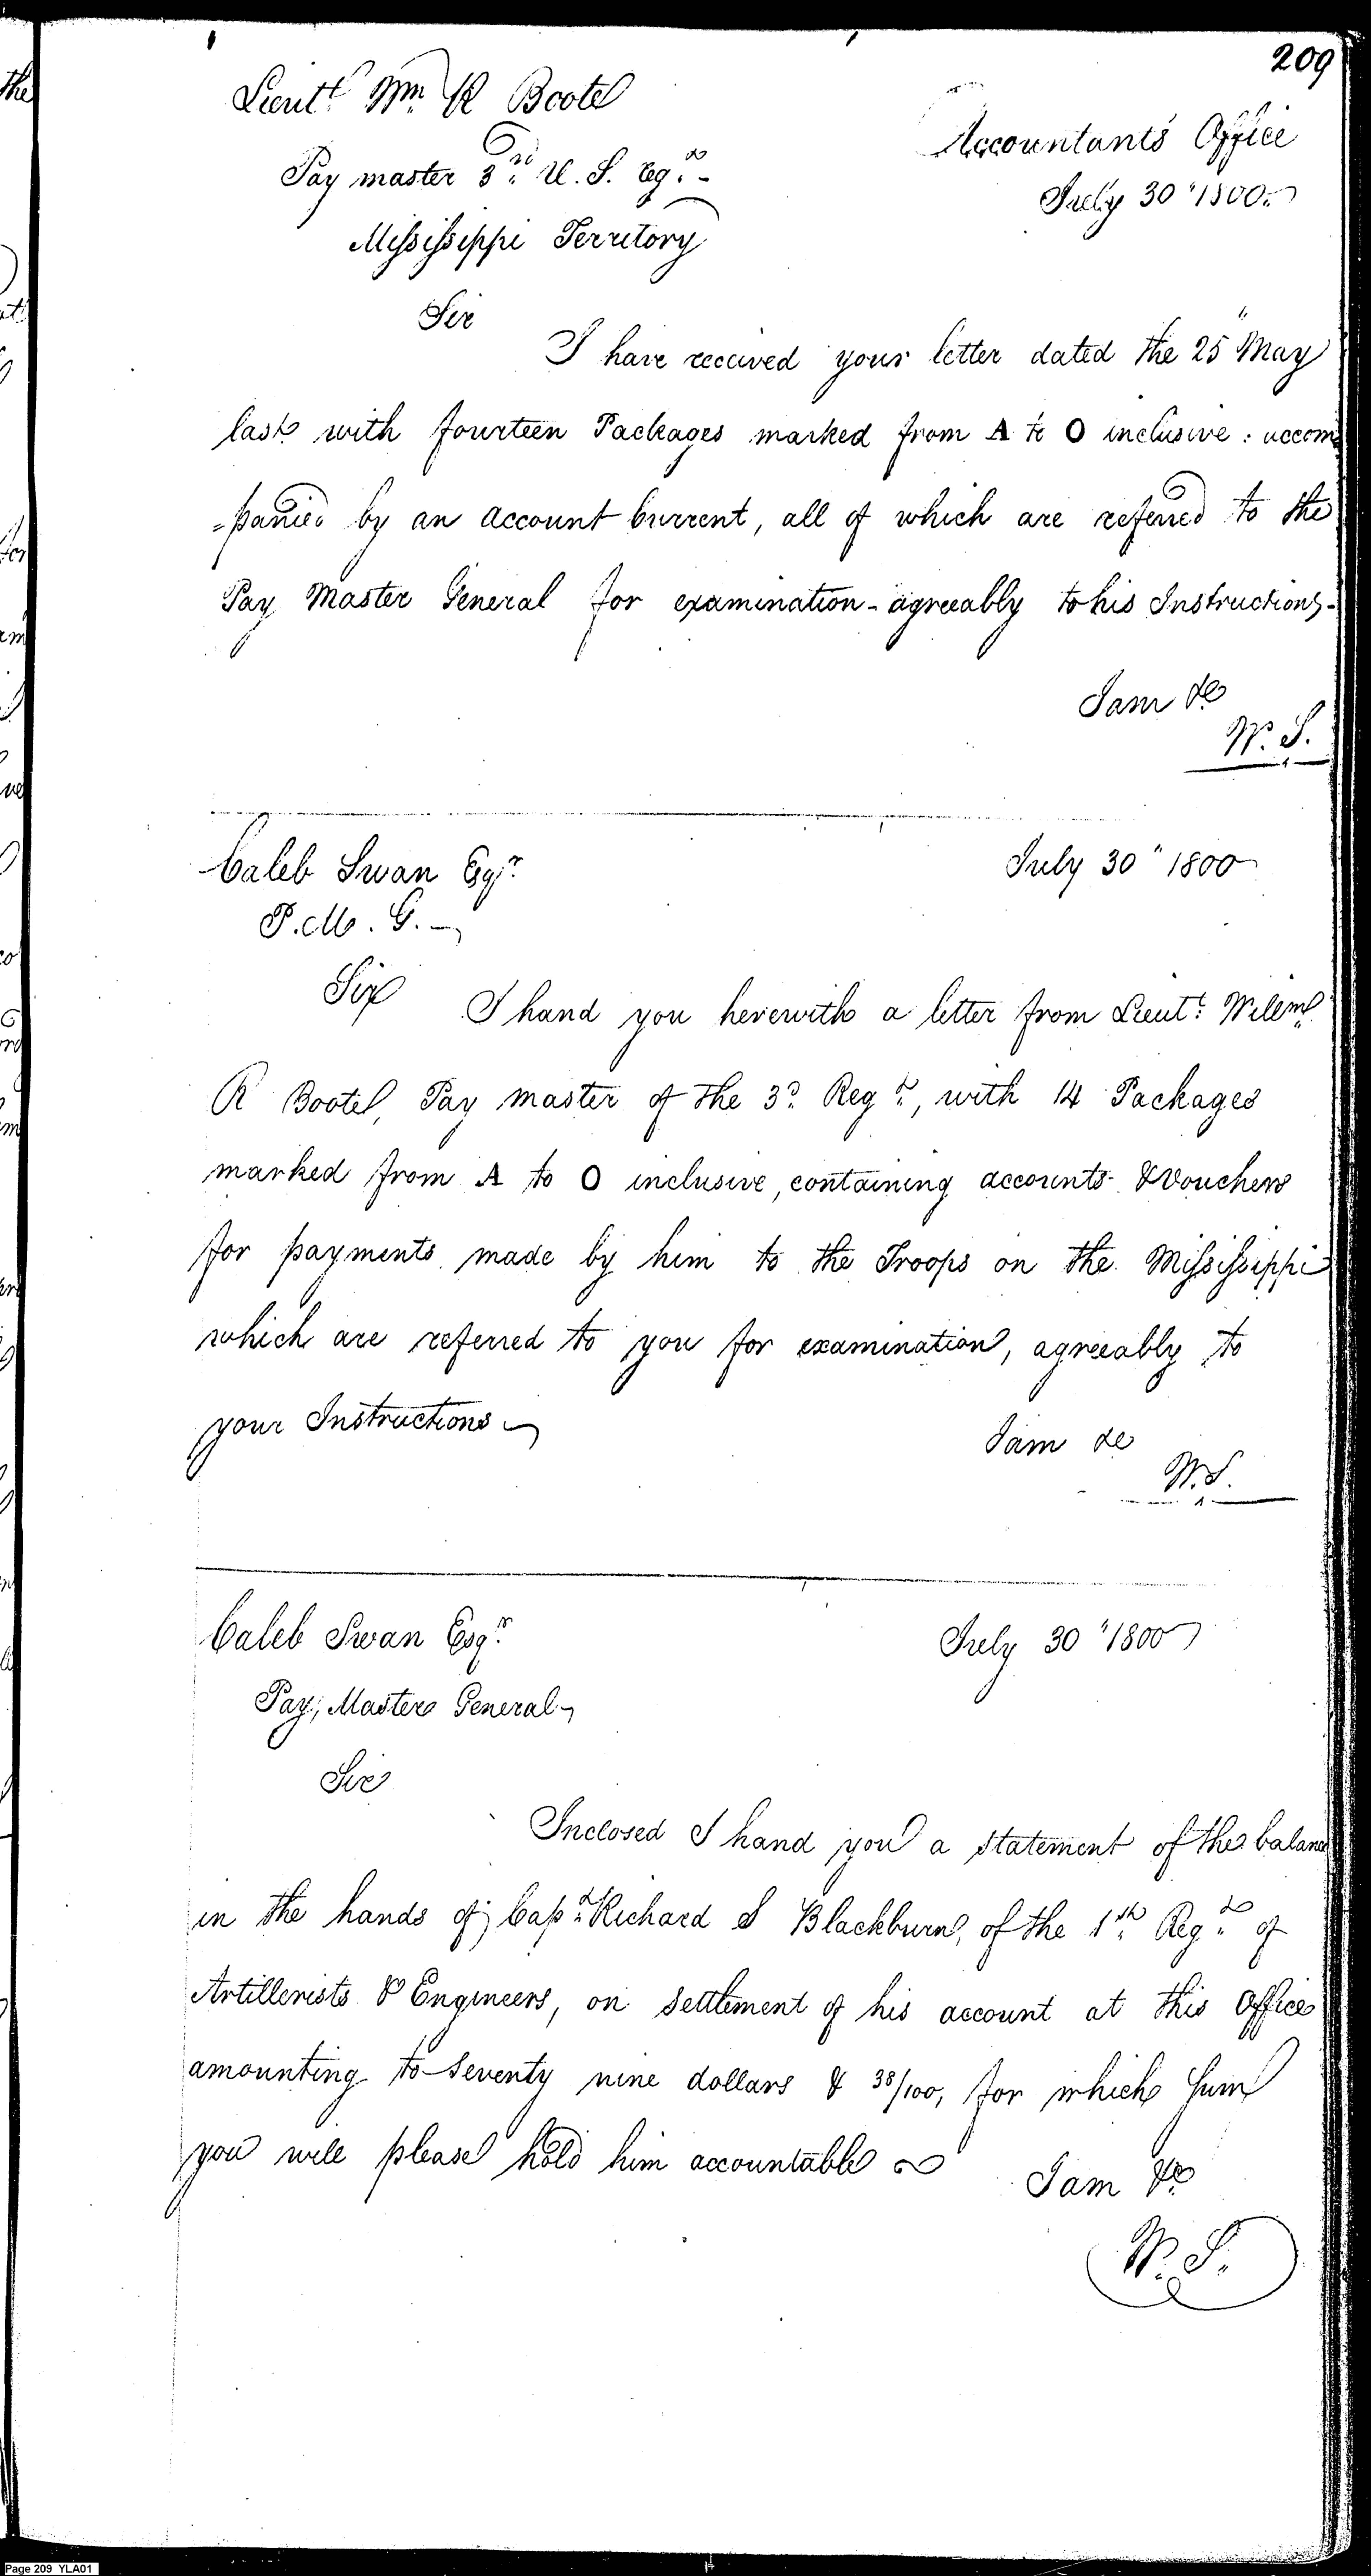 209
Lieutt Wm R Boote
Accountants Office
Pay master 3rd U. S. Regt -
July 30 "1800.
Mississippi Territory
Sir
I have received your letter dated the 25" May
last with fourteen Packages marked from A to O inclusive : accom
=panied by an account Current, all of which are referred to the
Pay Master General for examination - agreeably to his Instructions -
I am &c
W. S.
Caleb Swan Esqr
July 30 " 1800
P. M. G. -
Sir I hand you herewith a letter from Lieut: Willm
R Boote, Pay master of the 3d Regt, with 14 Packages
marked from A to O inclusive, containing accounts & Vouchers
for payments made by him to the Troops on the Mississippi
which are referred to you for examination, agreeably to
your Instructions
I am &c
W. S.
Caleb Swan Esqr
July 30 "1800
Pay, Master General
Sir
Inclosed I hand you a statement of the balance
in the hands of Capt Richard S Blackburn, of the 1st Regt of
Artillerists & Engineers, on settlement of his account at this Office
amounting to seventy nine dollars & 38/100, for which sum
you will please hold him accountable
I am &c
W. S.
Page 209 YLA01